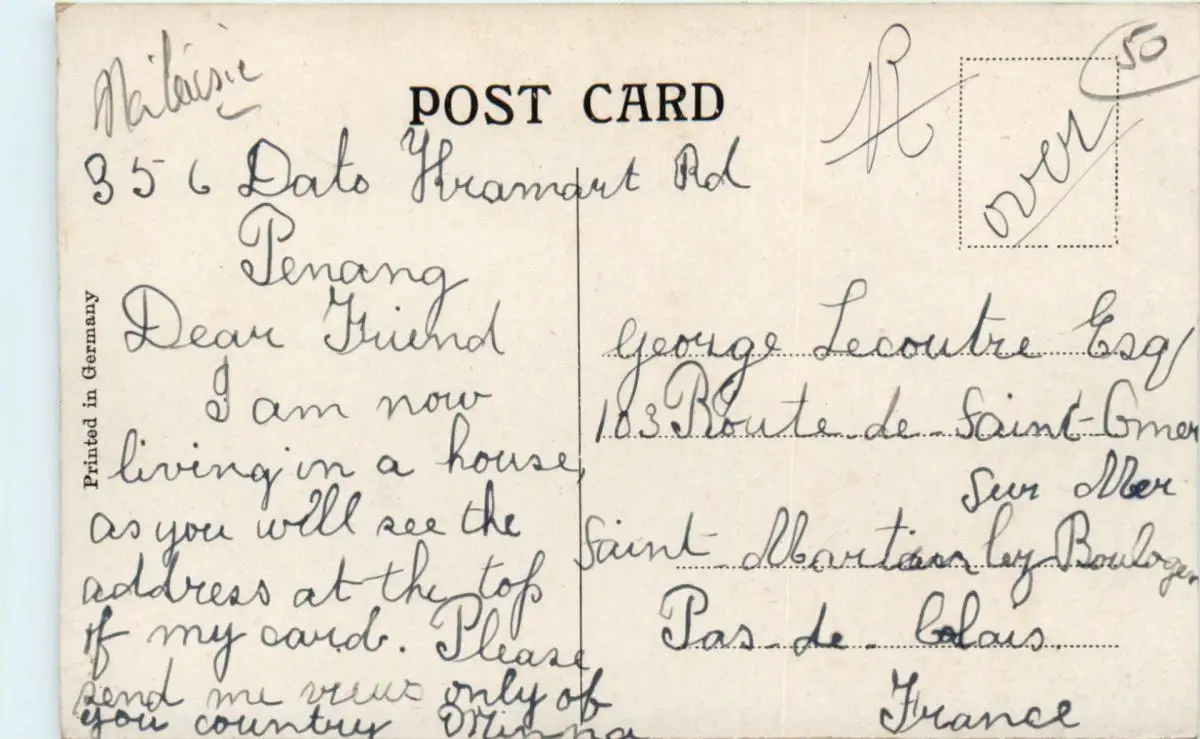 Malaisie
50
POST CARD
R
over
356 Dato Kramart Rd
Penang
Dear Friend
I am now
living in a house,
as you will see the
address at the top
if my card. Please
send me views only of
you country Minna
Printed in Germany
George Lecoutre Esq/
103 Route de Saint-Omer
sur Mer
Saint Martin lez Boulogen
Pas-de-Calais.
France